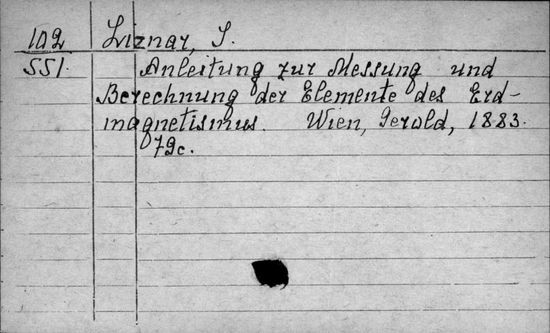 102 Liznar, S.
551. Anleitung zur Messung und
Berechnung der Elemente des Erd-
magnetismus. Wien, Gerold, 1883.
79c.